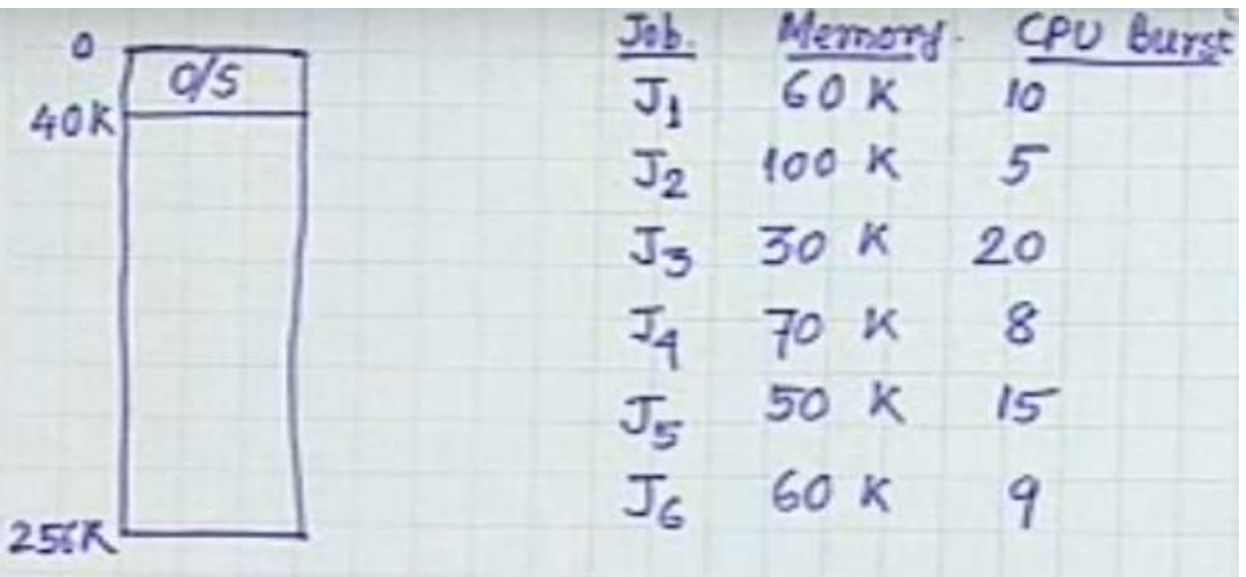 0
O/S
40K
256K
Job. Memory. CPU Burst
J1 60 K 10
J2 100 K 5
J3 30 K 20
J4 70 K 8
J5 50 K 15
J6 60 K 9